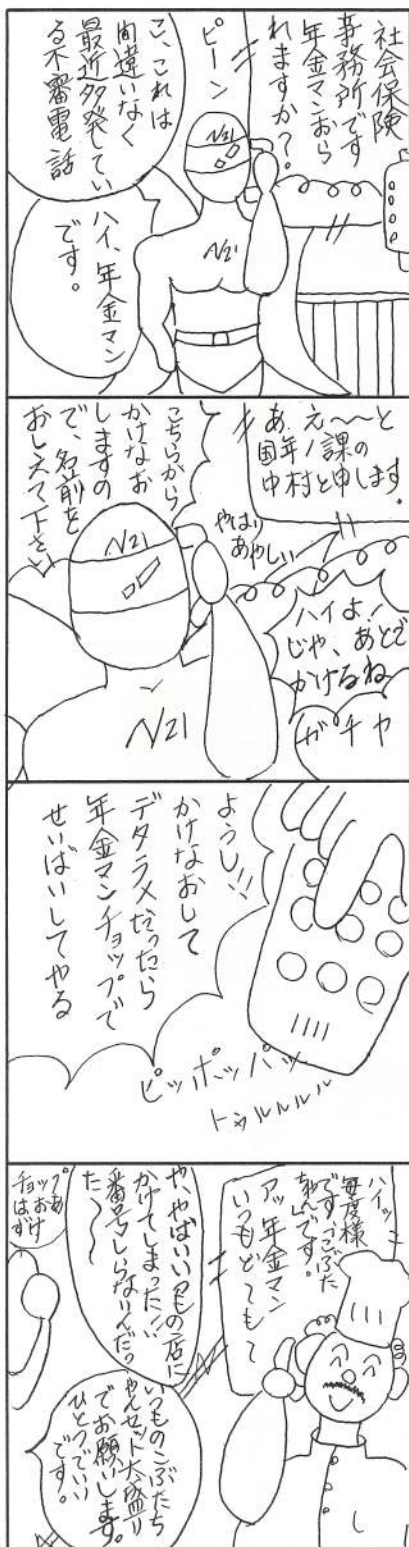 社会保険
事務所です
年金マンおら
れますか？
ピーン
こ、これは
間違いなく
最近多発してい
る不審電話
ハイ、年金マン
です。
N21
N21
え〜〜と
あ、
国年ノ課の
中村と申します。
やはり
あやしい
こちらから
かけなお
しますの
で、名前を
おしえて下さい
ハイよ！
じゃ、あとで
かけるね
ガチャ
N21
N21
ようし!!
かけなおして
デタラメだったら
年金マンチョップで
せいばいしてやる
ピッポッパッ
トゥルルルル
ハイッ
毎度様
です、こぶた
ちゃんです。
アッ年金マン
いつもどーもー
や、やばいいつもの店に
かけてしまった!!
番号しらないんだっ
た〜
いつものこぶたち
ゃんセット大盛り
でお願いします。
ひとつでいい
です。